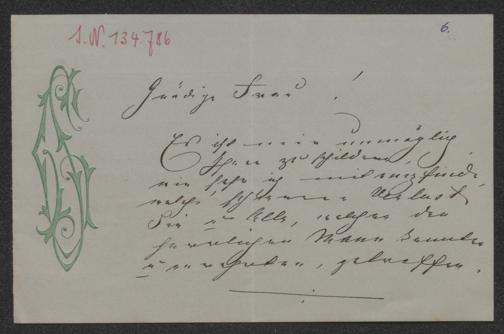 I. N. 134.786
6.
Gnädige Frau !
Es ist mir unmöglich
Ihnen zu schildern,
wie sehr ich mitempfinde,
welch' schwerer Verlust
Sie u Alle, welche den
herrlichen Mann kannten
u verehrten, getroffen.